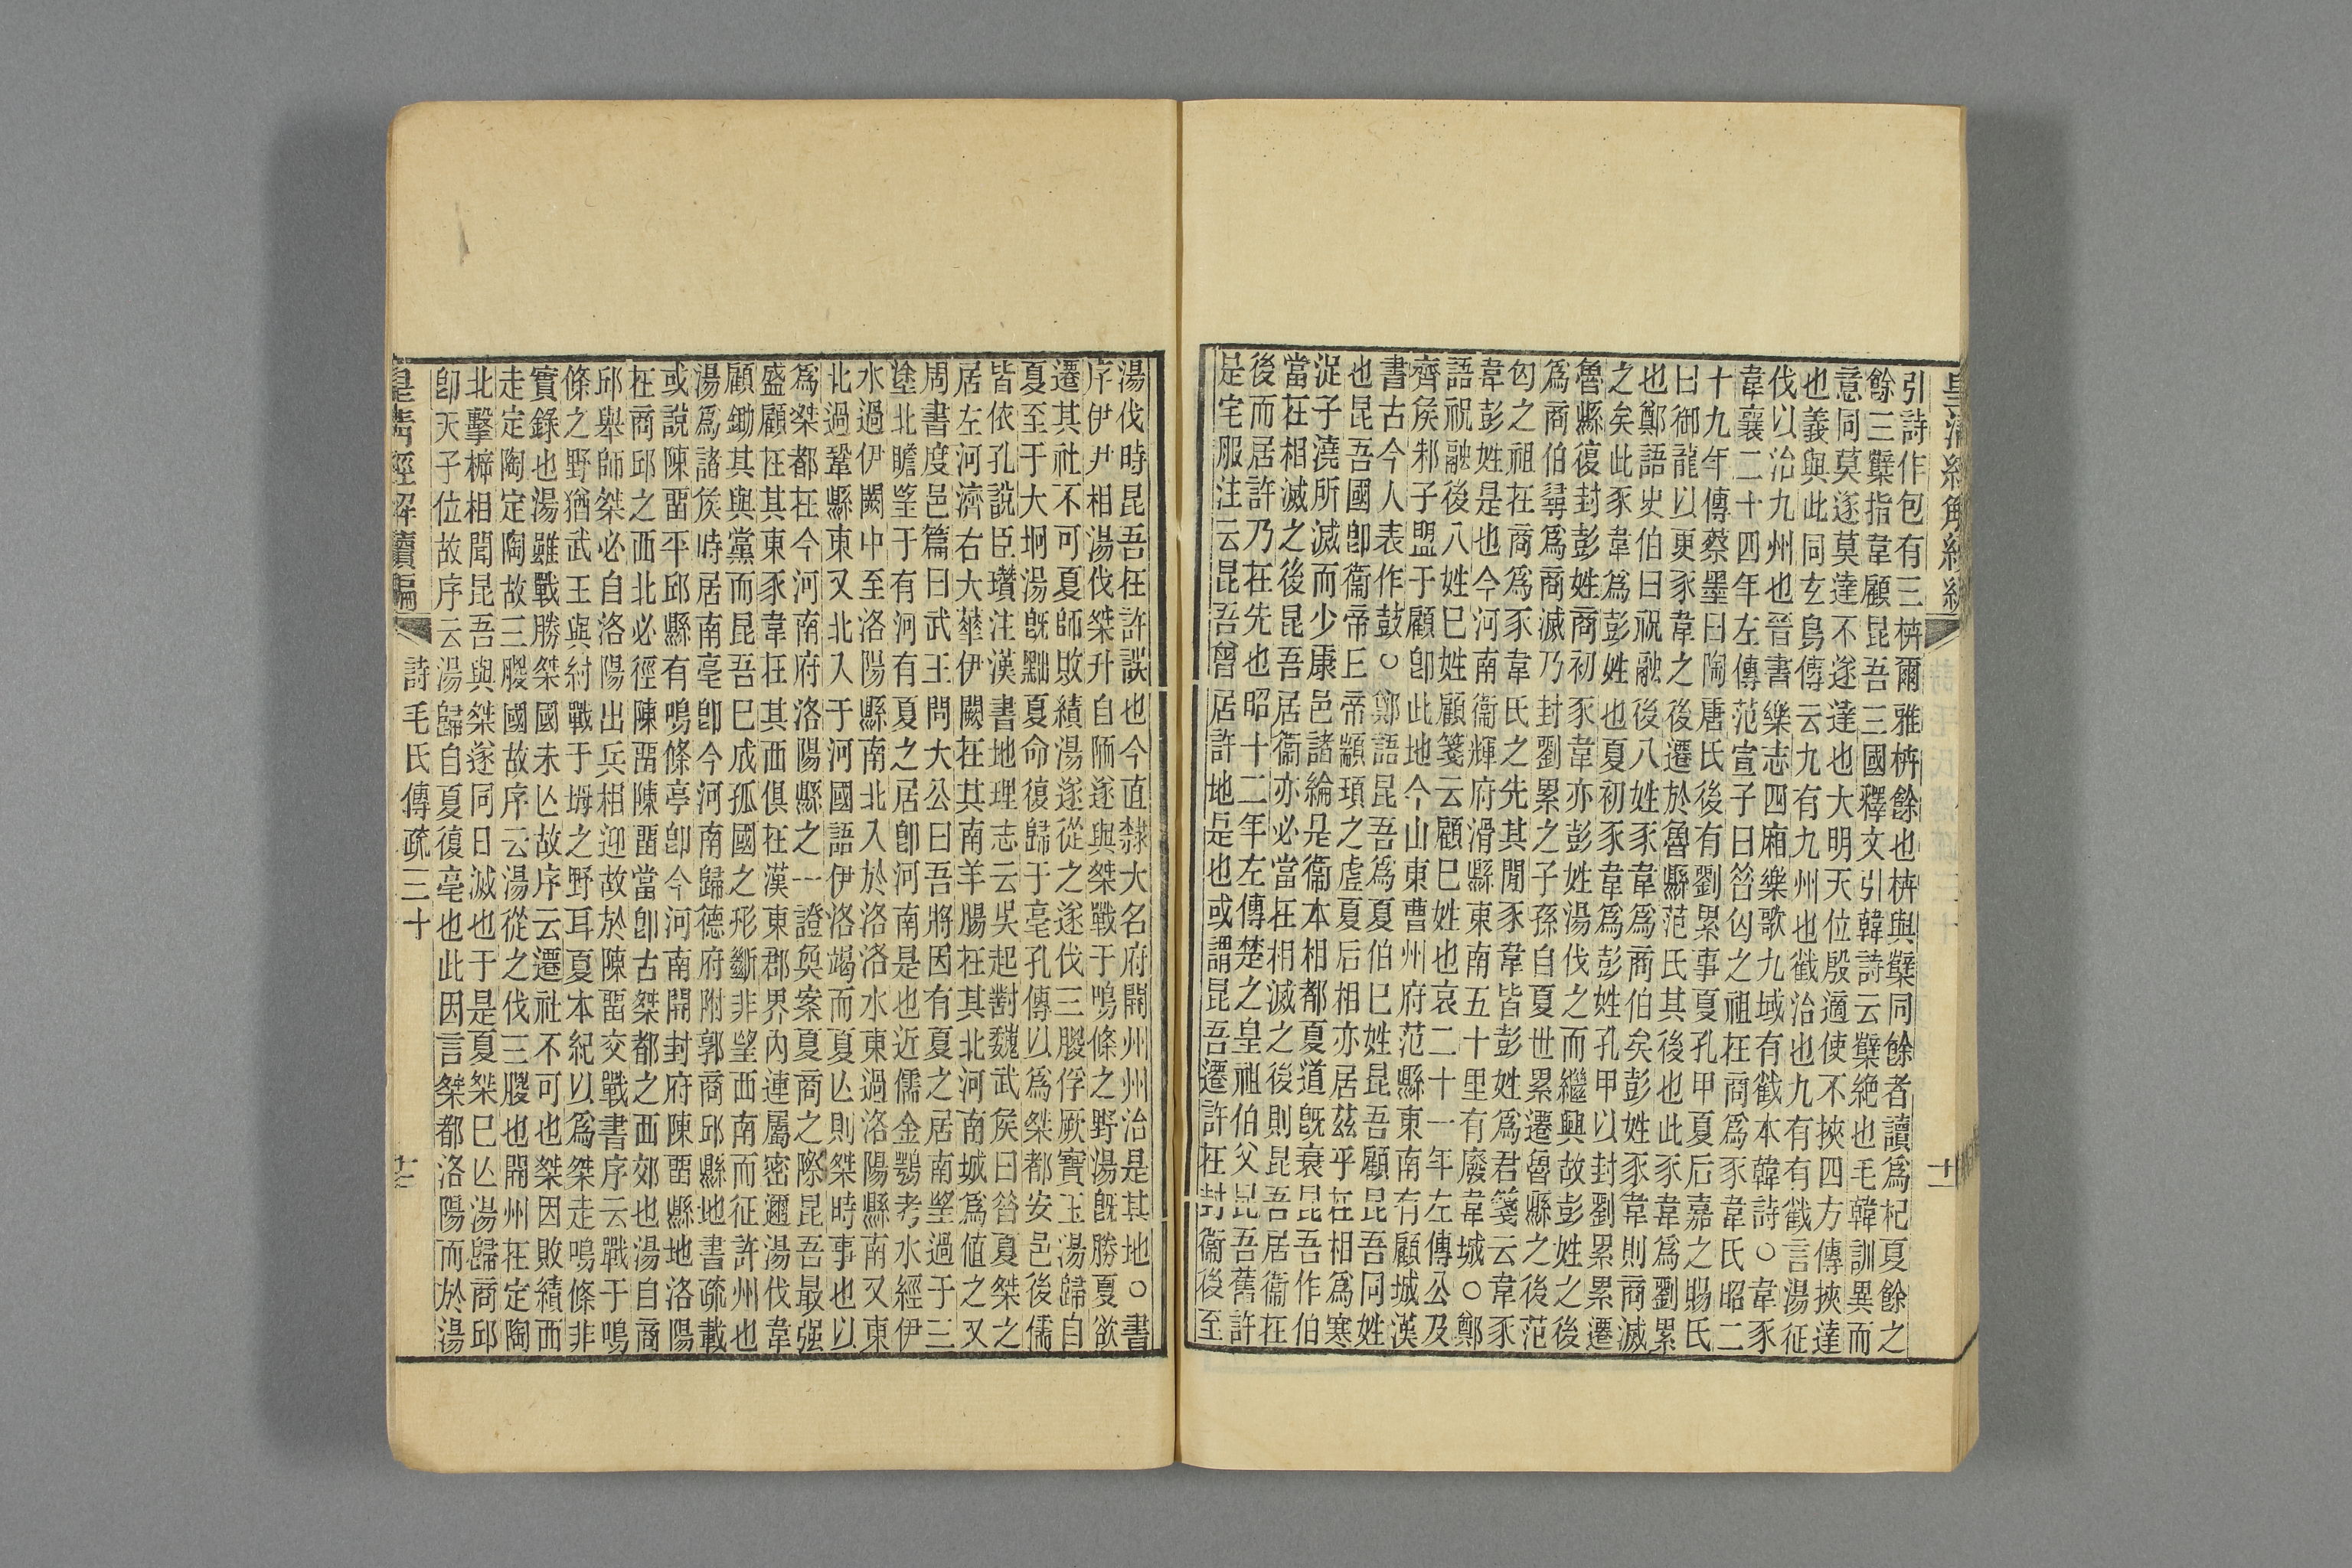 引詩作包有三枿爾雅枿餘也枿與櫱同餘者讀爲杞夏餘之
餘三櫱指韋顧昆吾三國釋文引韓詩云櫱絶也毛韓訓異而
意同莫遂莫達不遂達也大明天位殷適使不挾四方傳挾達
也義與此同玄鳥傳云九有九州也截治也九有有截言湯征
伐以治九州也晉書樂志四廂樂歌九域有截本韓詩○韋豕
韋襄二十四年左傳范宣子曰昝匄之祖在商爲豕韋氏昭二
十九年傳蔡墨曰陶唐氏後有劉累事夏孔甲夏后嘉之賜氏
曰御龍以更豕韋之後遷於魯縣范氏其後也此豕韋爲劉累
也鄭語史伯曰祝融後八姓豕韋爲商伯矣彭姓豕韋則商滅
之矣此豕韋爲彭姓也夏初豕韋爲彭姓孔甲以封劉累累遷
魯縣復封彭姓商初豕韋亦彭姓湯伐之而繼興故彭姓之後
爲商伯尋爲商滅乃封劉累之子孫自夏世累遷魯縣之後范
匄之祖在商爲豕韋氏之先其閒豕韋皆彭姓爲君箋云韋豕
韋彭姓是也今河南衞輝府滑縣東南五十里有廢韋城○鄭
語祝融後八姓巳姓顧箋云顧巳姓也哀二十一年左傳公及
齊矦邾子盟于顧卽此地今山東曹州府范縣東南有顧城漢
書古今人表作鼓○鄭語昆吾爲夏伯巳姓昆吾顧昆吾同姓
也昆吾國卽衞帝丘帝顓頊之虛夏后相亦居茲乎在相爲寒
浞子澆所滅而少康邑諸綸是衞本相都夏道旣衰昆吾作伯
當在相滅之後昆吾居衞亦必當在相滅之後則昆吾居衞在
後而居許乃在先也昭十二年左傳楚之皇祖伯父昆吾舊許
是宅服注云昆吾曾居許地是也或謂昆吾遷許在封衞後至
湯伐時昆吾在許誤也今直隸大名府開州州治是其地○書
序伊尹相湯伐桀升自陑遂與桀戰于鳴條之野湯旣勝夏欲
遷其社不可夏師敗績湯遂從之遂伐三朡俘厥寶玉湯歸自
夏至于大坰湯旣黜夏命復歸于亳孔傳以爲桀都安邑後儒
皆依孔說臣瓚注漢書地理志云吳起對魏武矦曰昝夏桀之
居左河濟右大華伊闕在其南羊腸在其北河南城爲值之又
周書度邑篇曰武王問大公曰吾將因有夏之居南望過于三
塗北瞻望于有河有夏之居卽河南是也近儒金鶚考水經伊
水過伊闕中至洛陽縣南北入於洛洛水東過洛陽縣南又東
北過鞏縣東又北入于河國語伊洛竭而夏亾則桀時事也以
爲桀都在今河南府洛陽縣之一證奐案夏商之際昆吾最强
盛顧在其東豕韋在其西俱在漢東郡界內連屬密邇湯伐韋
顧鋤其與黨而昆吾巳成孤國之形斷非望西南而征許州也
湯爲諸矦時居南亳卽今河南歸德府附郭商邱縣地書疏載
或說陳畱平邱縣有鳴條亭卽今河南開封府陳畱縣地洛陽
在商邱之西北必徑陳畱陳畱當卽古桀都之西郊也湯自商
邱舉師桀必自洛陽出兵相迎故於陳畱交戰書序云戰于鳴
條之野猶武王與紂戰于坶之野耳夏本紀以爲桀走鳴條非
實錄也湯雖戰勝桀國未亾故序云遷社不可也桀因敗績而
走定陶定陶故三朡國故序云湯從之伐三朡也開州在定陶
北擊櫛相聞昆吾與桀遂同日滅也于是夏桀巳亾湯歸商邱
卽天子位故序云湯歸自夏復亳也此因言桀都洛陽而於湯
皇清經解續編 詩毛氏傳疏三十